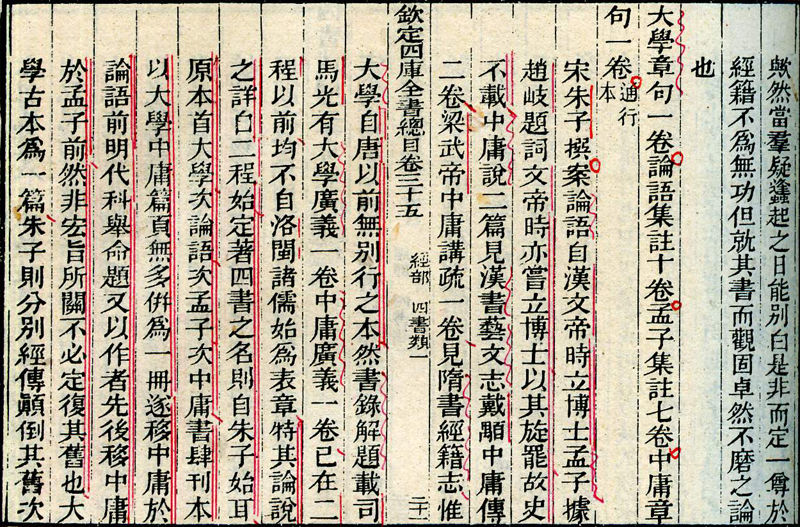 歟然當羣疑蠭起之日能別白是非而定一尊於
經籍不爲無功但就其書而觀固卓然不磨之論
也
大學章句一卷論語集註十卷孟子集註七卷中庸章
句一卷通行本
宋朱子撰案論語自漢文帝時立博士孟子據
趙岐題詞文帝時亦嘗立博士以其旋罷故史
不載中庸說二篇見漢書藝文志戴顒中庸傳
二卷梁武帝中庸講疏一卷見隋書經籍志惟
欽定四庫全書總目卷三十五 經部 四書類一 二十一
大學自唐以前無別行之本然書錄解題載司
馬光有大學廣義一卷中庸廣義一卷已在二
程以前均不自洛閩諸儒始爲表章特其論說
之詳自二程始定著四書之名則自朱子始耳
原本首大學次論語次孟子次中庸書肆刊本
以大學中庸篇頁無多併爲一冊遂移中庸於
論語前明代科舉命題又以作者先後移中庸
於孟子前然非宏旨所關不必定復其舊也大
學古本爲一篇朱子則分別經傳顚倒其舊次